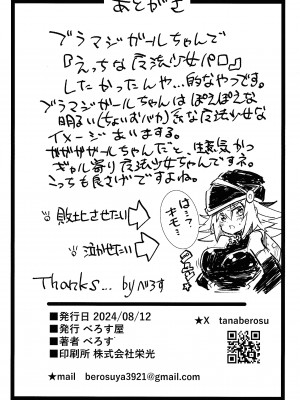 あとがき
ブラマジガールちゃんで
『えっちな魔法少女パロ』
したかったんや…的なやつです。
ブラマジガールちゃんはぽえぽえな
明るい(ちょいおバカ)系な魔法少女な
イメージあいまする。
ガガガガールちゃんだと、生意気かつ
ギャル寄り魔法少女ちゃんですネ。
こっちも良さげですよね。
敗北させたい
泣かせたい
は…?
キモ…
Thanks... by べろす
■発行日 2024/08/12
■発行 べろす屋
■著者 べろす
■印刷所 株式会社栄光
★X tanaberosu
★mail berosuya3921@gmail.com